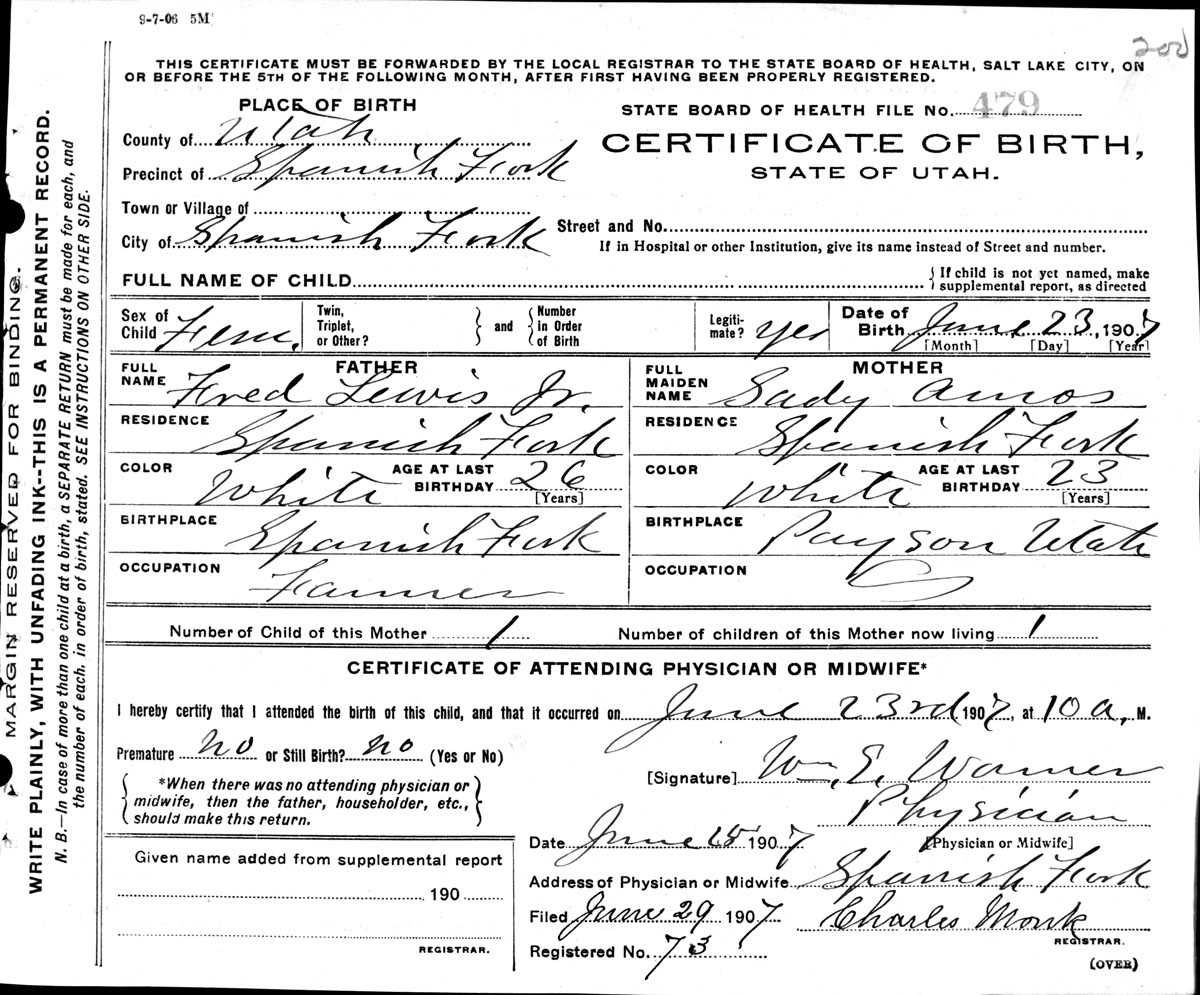 9-7-06 5M
200
THIS CERTIFICATE MUST BE FORWARDED BY THE LOCAL REGISTRAR TO THE STATE BOARD OF HEALTH, SALT LAKE CITY, ON
OR BEFORE THE 5TH OF THE FOLLOWING MONTH, AFTER FIRST HAVING BEEN PROPERLY REGISTERED.
PLACE OF BIRTH
County of Utah
Precinct of Spanish Fork
Town or Village of
City of Spanish Fork
STATE BOARD OF HEALTH FILE No. 479
CERTIFICATE OF BIRTH,
STATE OF UTAH.
Street and No.
If in Hospital or other Institution, give its name instead of Street and number.
FULL NAME OF CHILD
{ If child is not yet named, make
supplemental report, as directed
Sex of Child Fem.
Twin, Triplet, or Other? } and { Number in Order of Birth
Legiti-mate? yes
Date of Birth June 23, 1907
[Month] [Day] [Year]
FATHER
FULL NAME Fred Lewis Jr.
RESIDENCE Spanish Fork
COLOR White AGE AT LAST BIRTHDAY 26
[Years]
BIRTHPLACE Spanish Fork
OCCUPATION Farmer
MOTHER
FULL MAIDEN NAME Sady Amos
RESIDENCE Spanish Fork
COLOR White AGE AT LAST BIRTHDAY 23
[Years]
BIRTHPLACE Payson Utah
OCCUPATION
Number of Child of this Mother 1 Number of children of this Mother now living 1
CERTIFICATE OF ATTENDING PHYSICIAN OR MIDWIFE*
I hereby certify that I attended the birth of this child, and that it occurred on June 23rd 1907, at 10 a, M.
Premature No or Still Birth? no (Yes or No)
{ *When there was no attending physician or
midwife, then the father, householder, etc.,
should make this return. }
[Signature] Wm. E. Warner
Physician
[Physician or Midwife]
Date June 1907
Address of Physician or Midwife Spanish Fork
Filed June 29 1907 Charles Monk
REGISTRAR.
Registered No. 73
(OVER)
Given name added from supplemental report
190
REGISTRAR.
MARGIN RESERVED FOR BINDING.
WRITE PLAINLY, WITH UNFADING INK--THIS IS A PERMANENT RECORD.
N. B.—In case of more than one child at a birth, a SEPARATE RETURN must be made for each, and
the number of each, in order of birth, stated. SEE INSTRUCTIONS ON OTHER SIDE.